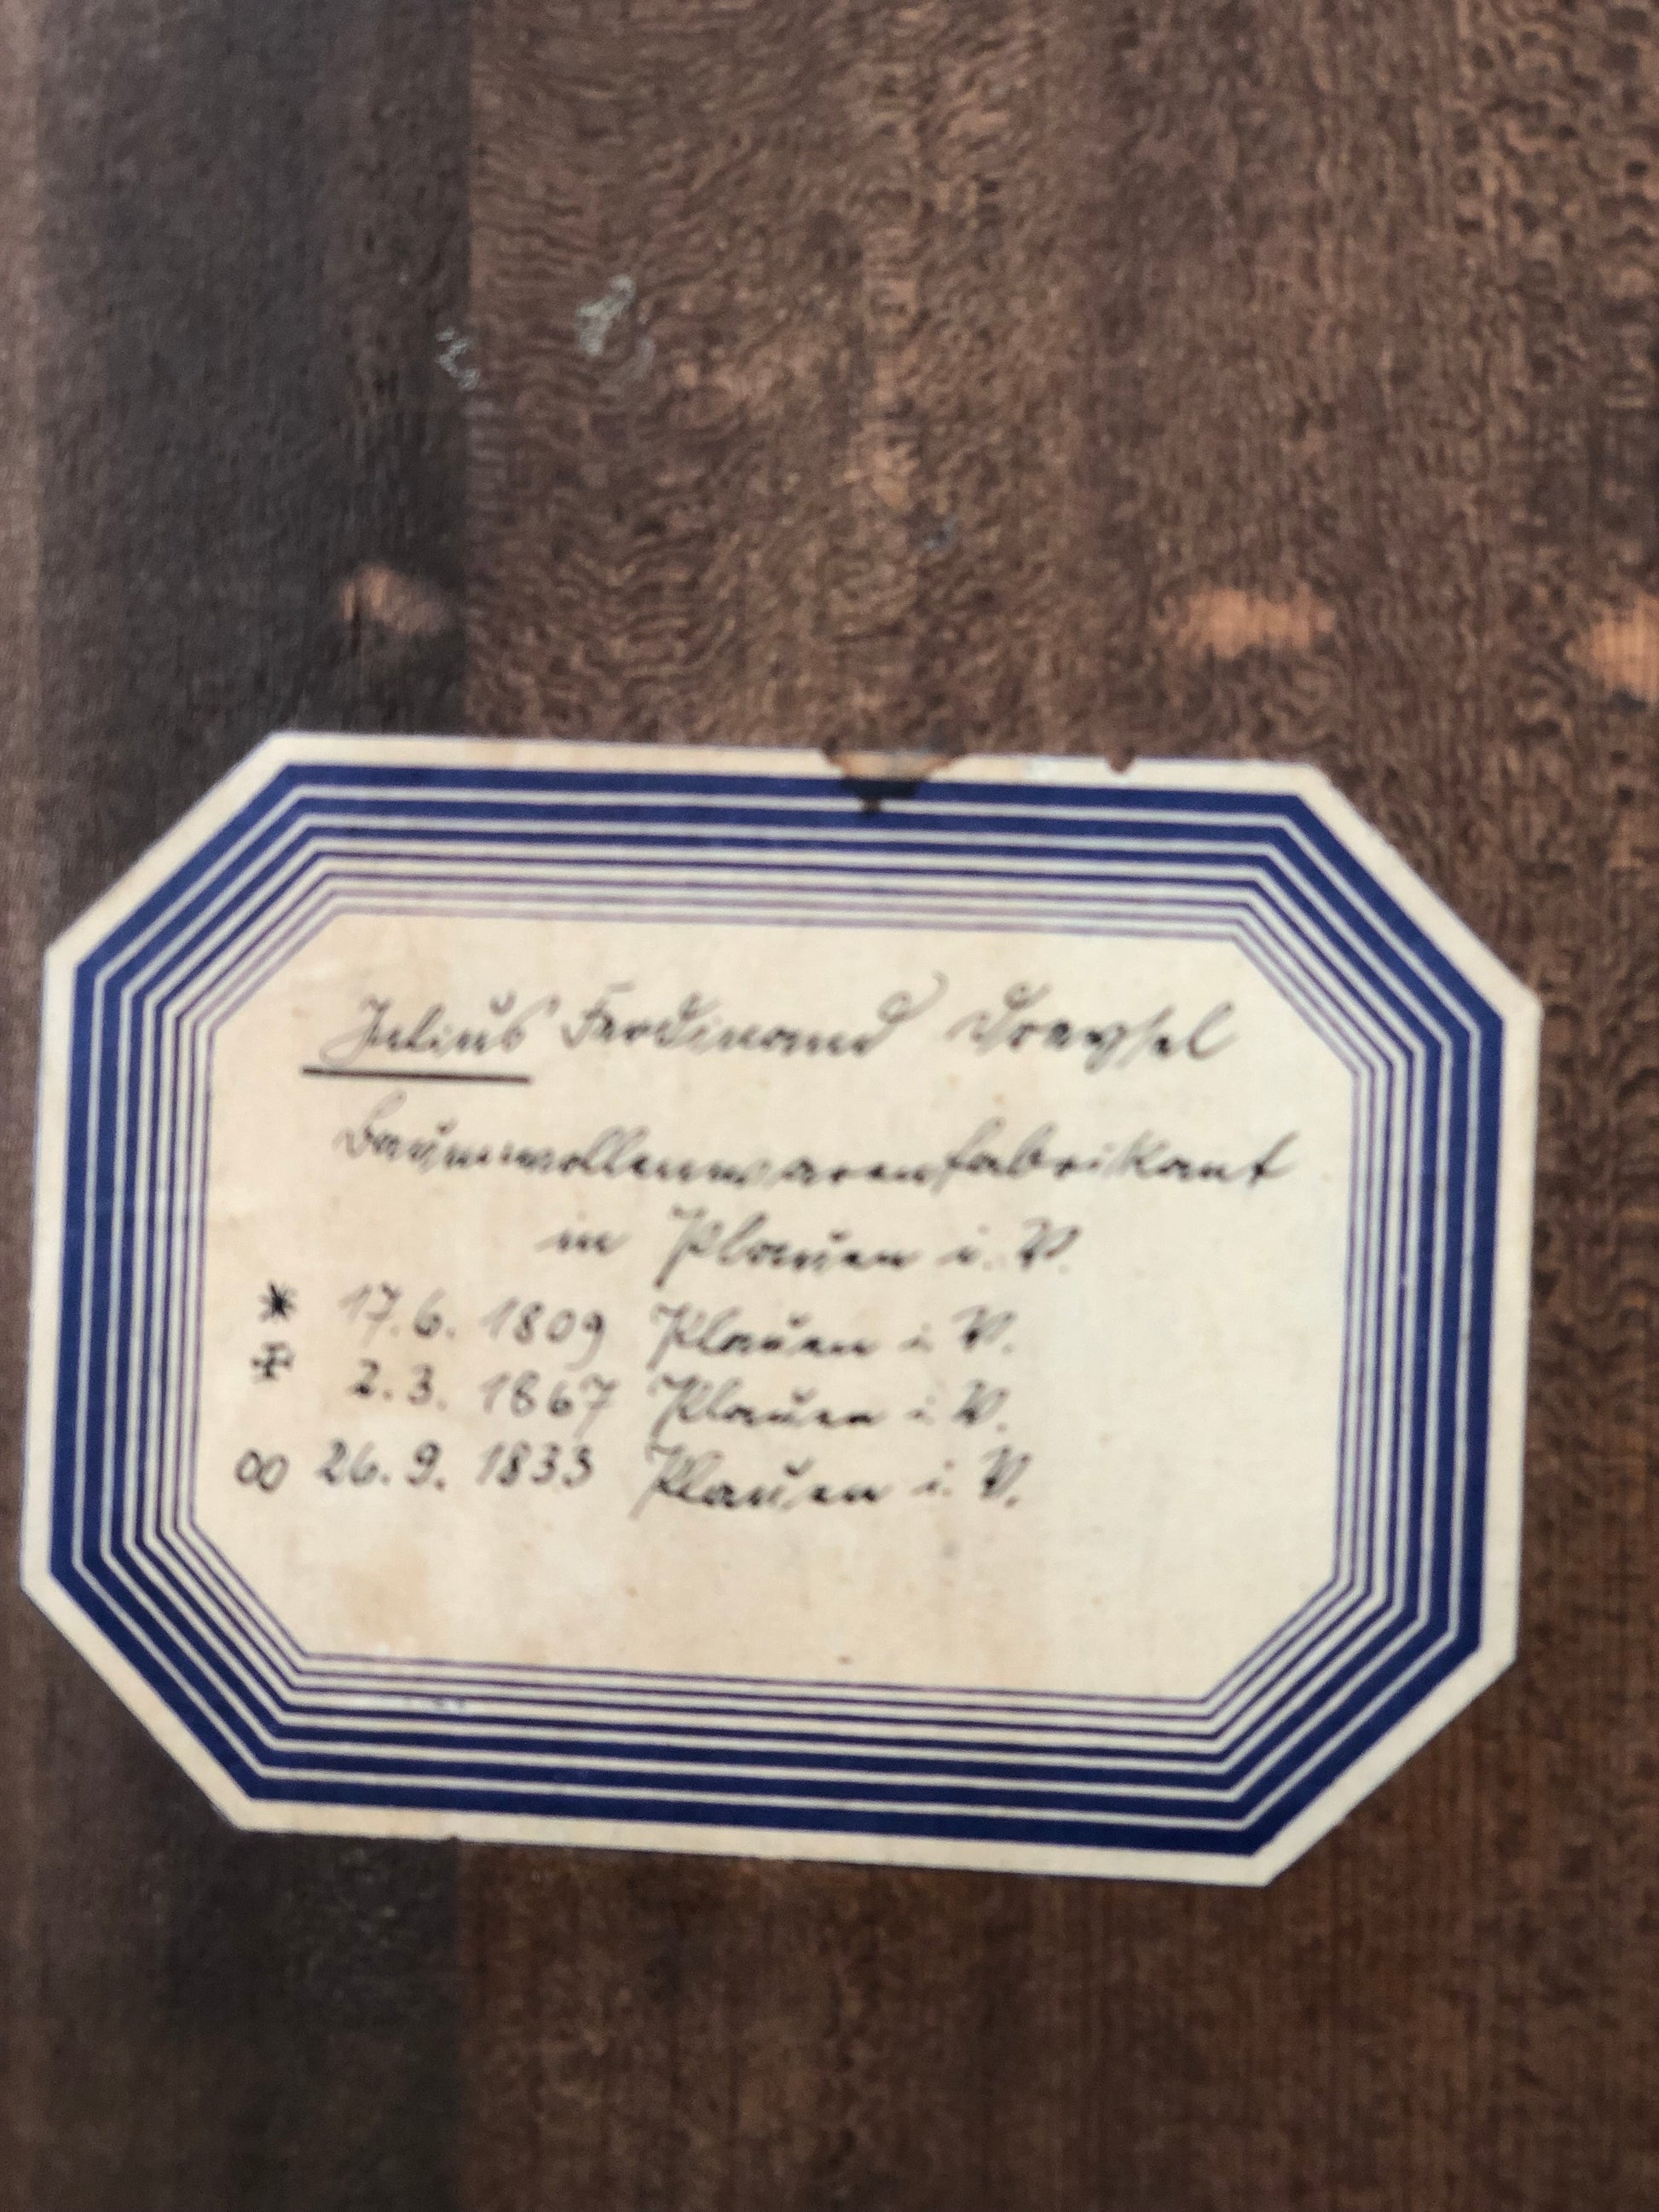 Julius Ferdinand Dreyssel
Baumwollenwarenfabrikant
in Plauen i. V.
* 17.6. 1809 Plauen i. V.
✠ 2.3. 1867 Plauen i. V.
∞ 26.9. 1833 Plauen i. V.